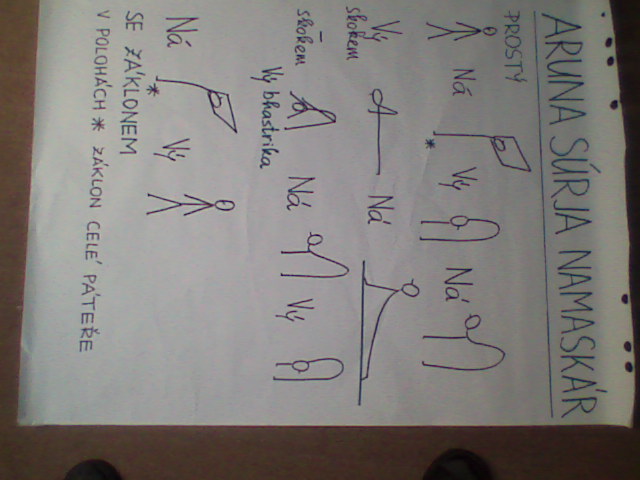 ARUNA SÚRJA NAMASKÁR
PROSTÝ
Ná * Vý Ná
Vý
skokem
Ná
skokem Vý bhastrika Ná Vý
Ná * Vý
SE ZÁKLONEM
V POLOHÁCH * ZÁKLON CELÉ PÁTEŘE